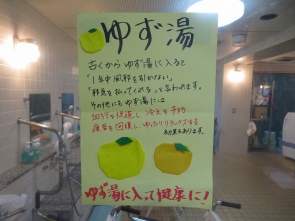 ゆず湯
古くからゆず湯に入ると
"1年中風邪を引かない"
"邪気を払ってくれる"と言われます。
その他にもゆず湯には
血行を促進し、冷え性予防
疲労を回復し、ゆったりリラックスする
効果もあります。
ゆず湯に入って健康に！